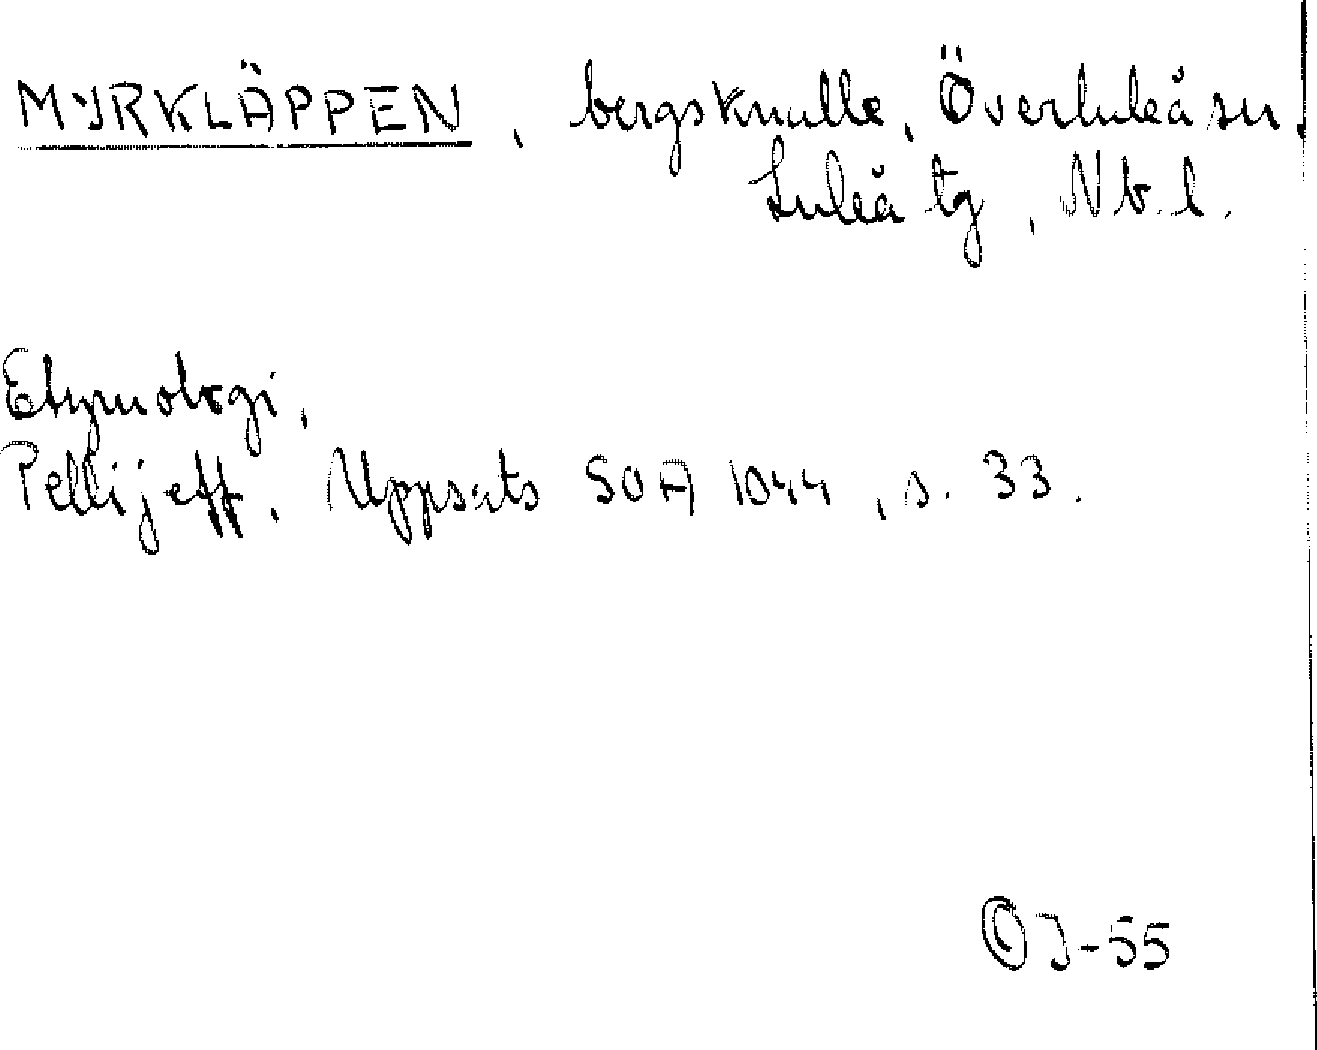 MYRKLÄPPEN, bergsknulle, Överluleå sn.
Luleå tg, Nb.l.
Etymologi,
Pellijeff, Uppsats SOA 1044, s. 33.
© J-55